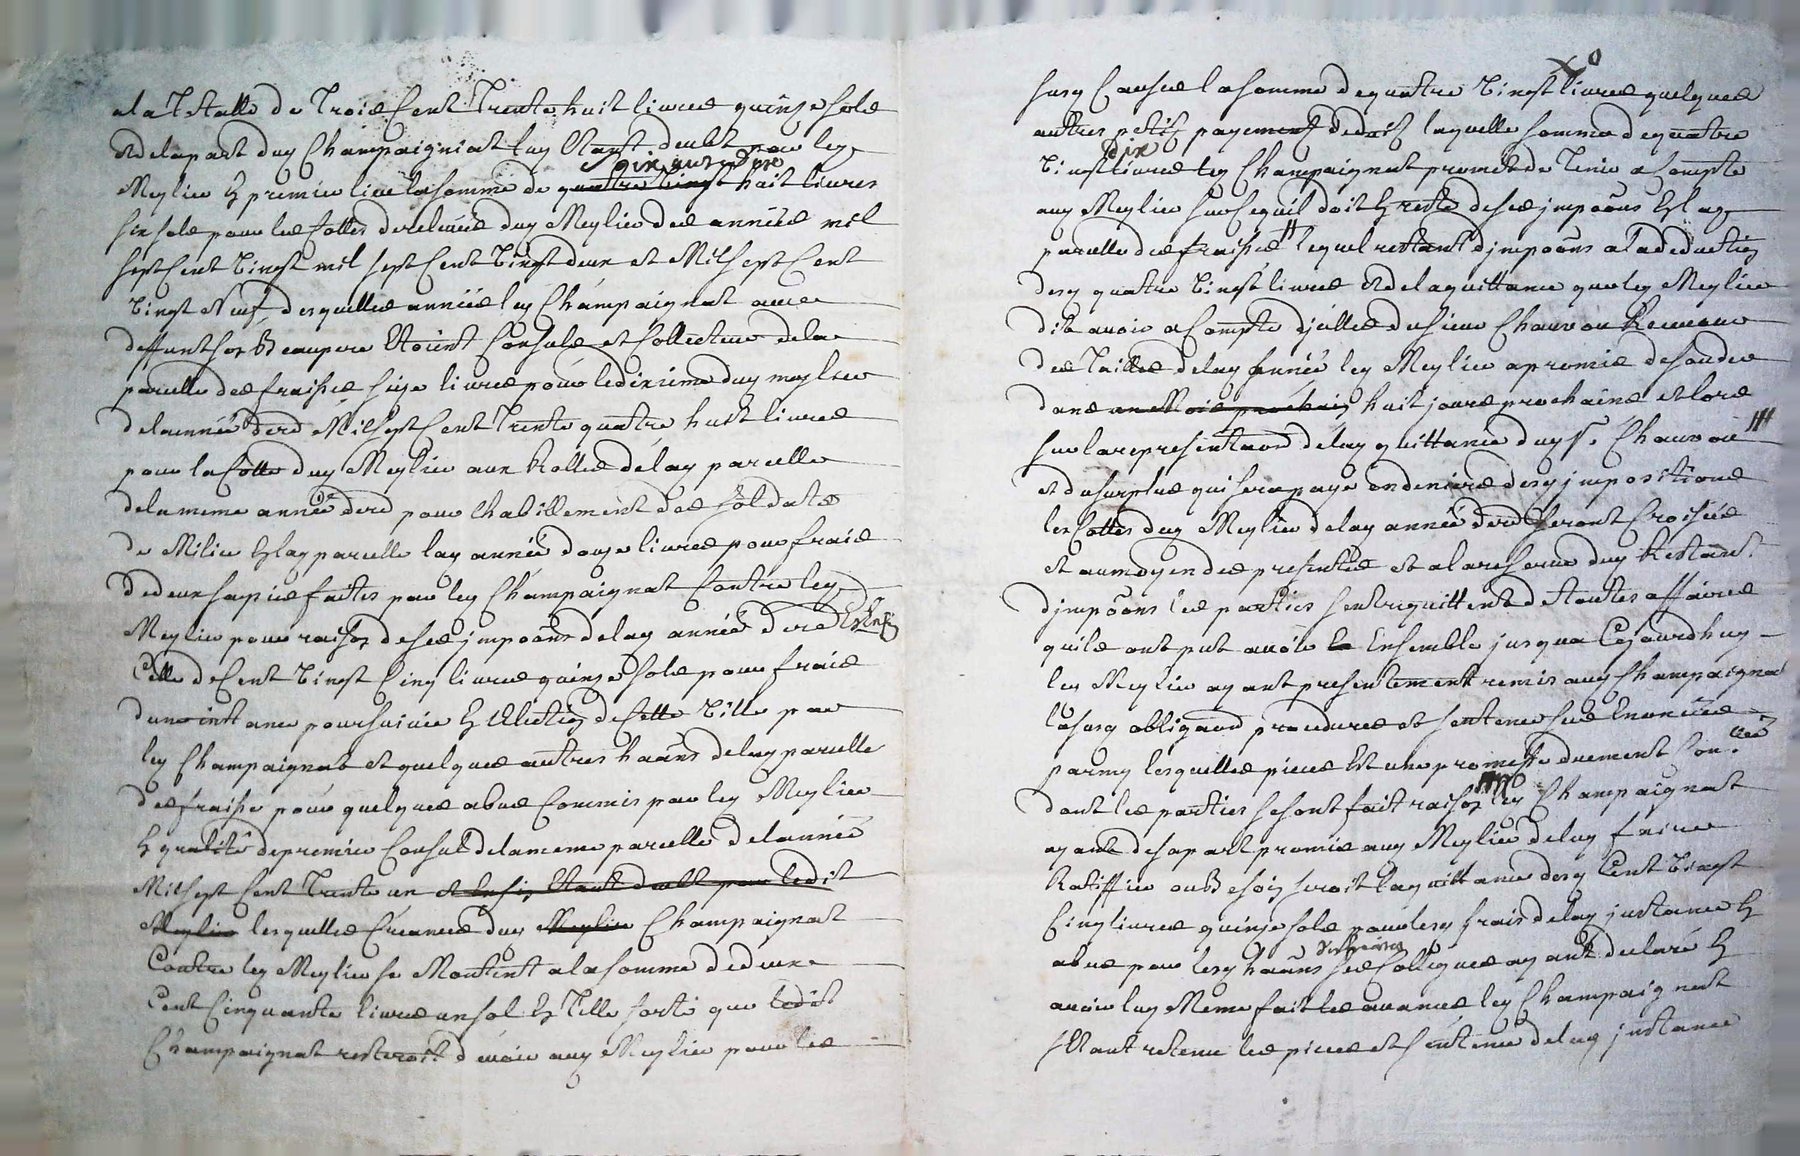 a la Totalle de Trois Cent Trente huit livres quinze sols
et de la part duy Champaignat luy Etant deubt par ley
soixante
Meylier en premier lieu la somme de quatre vingt huit livres
six sols pour les Cottes de relevée duy Meylier des années mil
sept Cent vingt mil sept Cent vingt deux et Mil sept Cent
vingt Neuf desquelles années ley Champaignat avec
deffunt son Beaupere Etoient Consuls et Collecteurs de la
parcelle des fraisse seize livres pour le dixieme duy meylier
de l'année dere Mil sept Cent Trente quatre huit livres
pour la Cotte duy Meylier aux Rolles de lay parcelle
de la meme année dere pour l'habillement des soldats
de Milice en lay parcelle lay année douze livres pour frais
de deux saisies faites par ley Champaignat Contre ley
Meylier pour raison de ses impoons de lay année dere Et Enfin
Celle de Cent vingt Cinq livres quinze sols pour frais
d'une instance poursuivie en Election de Cette ville par
ley Champaignat et quelques autres haans de lay parcelle
des fraisse pour quelques abus Commis par ley Meylier
En qualité de premier Consul de la meme parcelle de l'année
Mil sept Cent Trente un et Enfin Etant deubt par ledit
Meylier lesquelles Creances duy Meylier Champaignat
Contre ley Meylier se Montent a la somme de deux
Cent Cinquante livres un sol En Telle sorte que ledit
Champaignat resteroit devoir auy Meylier pour les
susy Causes la somme de quatre vingt livres quelques
autres petits payements deduits laquelle somme de quatre
dix
vingt livres ley Champaignat promet de Tenir a Compte
auy Meylier sur ce quil doit En reste de ses impoons En lay
parcelle des fraisse lequel restant dimpoons a la deduction
desy quatre vingt livres et de la quittance que ley Meylier
dit avoir a Compte dicelles du sieur Chauvou Receveur
des Tailles de lay Année ley Meylier a promis de souder
dans un Mois prochain huit jours prochains et lors
sur la representaon de lay quittance duy Sr. Chauvou
et du surplus qui sera payé en deniers desy impositions
les Cottes duy Meylier de lay année dere seront Croisées
et au moyen des presentes et a la reserve duy Restant
dimpoons les parties sentrequittent de toutes affaires
quils ont put avoir Ensemble jusqua Cejourdhuy
ley Meylier ayant presentement remis auy Champaignat
lesusy obligaon procedures et sentence sus Enoncées
parmy lesquelles pieces Est une promesse duement Con.lée
dont les parties se sont fait raison ley Champaignat
ayant de sa part promis auy Meylier de luy faire
Ratiffier ou Besoin seroit la quittance desy Cent vingt
Cinq livres quinze sols pour lesy frais de lay instance En
abus par lesy haans ses Collegues ayant declaré En
avoir luy Meme fait les avances ley Champaignat
sEtant retenu les pieces et sentence de lay instance